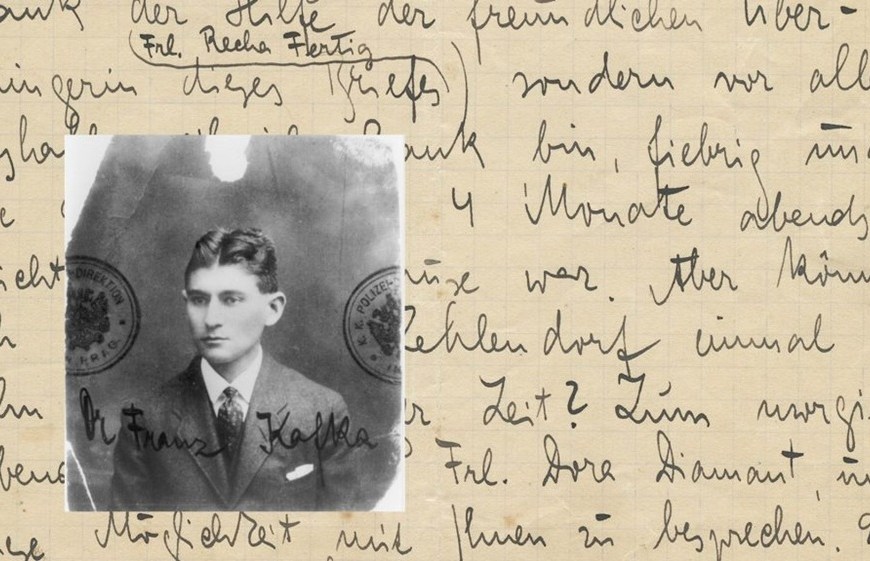 der Hilfe der freundlichen Über-
(Frl. Recha Fertig
ingerin dieses Briefes) sondern vor all
bin, fiebrig und
4 Monate abends
war. Aber könn
Zehlendorf einmal
Zeit? Zum
Frl. Dora Diamant,
Möglichkeit mit Ihnen zu besprechen.
DIREKTION
PRAG
K. K. POLIZEI-
Dr Franz Kafka